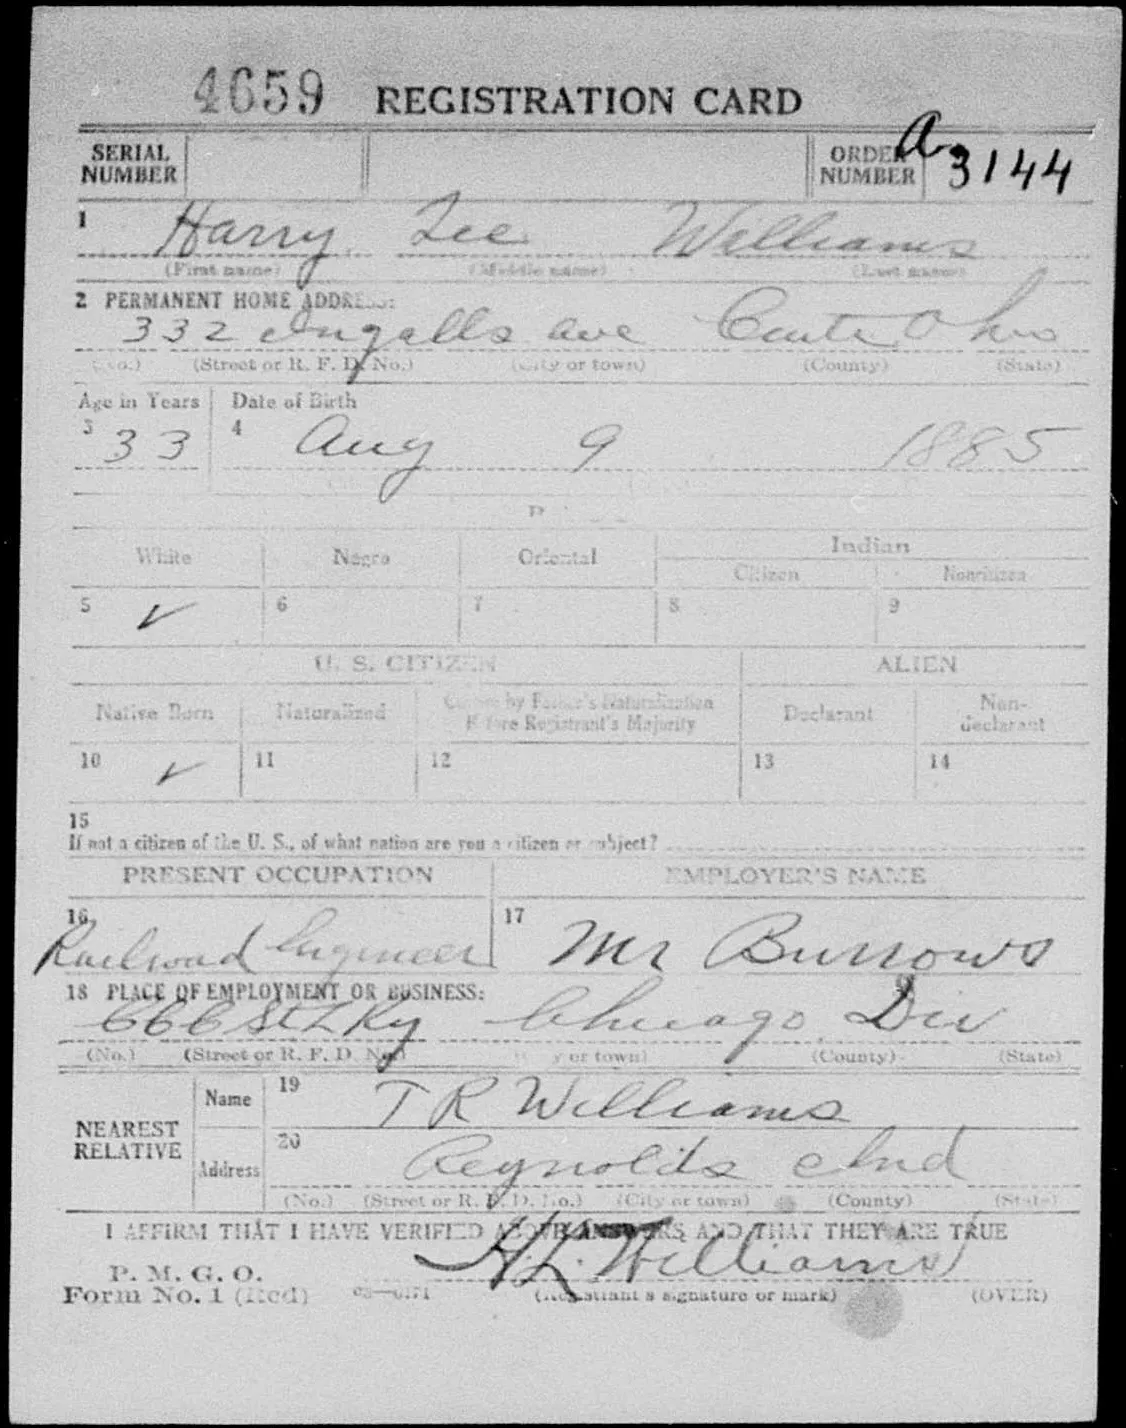 4659 REGISTRATION CARD
SERIAL NUMBER ORDER NUMBER A 3144
1 Harry Lee Williams
(First name) (Middle name) (Last name)
2 PERMANENT HOME ADDRESS:
332 Ingalls ave Ohio
(No.) (Street or R. F. D. No.) (City or town) (County) (State)
Age in Years Date of Birth
3 33 4 Aug 9 1885
White Negro Oriental Indian
Citizen Noncitizen
5 ✓ 6 7 8 9
U. S. CITIZEN ALIEN
Native Born Naturalized Citizen by Father's Naturalization Before Registrant's Majority Declarant Non-declarant
10 ✓ 11 12 13 14
15
If not a citizen of the U. S., of what nation are you a citizen or subject?
PRESENT OCCUPATION EMPLOYER'S NAME
16 Railroad Engineer 17 Mr Burrows
18 PLACE OF EMPLOYMENT OR BUSINESS:
CCC & St L Ry Chicago Div
(No.) (Street or R. F. D. No.) (City or town) (County) (State)
NEAREST RELATIVE
Name 19 T R Williams
Address 20 Reynolds Ind
(No.) (Street or R. F. D. No.) (City or town) (County) (State)
I AFFIRM THAT I HAVE VERIFIED ABOVE ANSWERS AND THAT THEY ARE TRUE
P. M. G. O.
Form No. 1 (Red) 03—6171 H.L. Williams
(Registrant's signature or mark) (OVER)